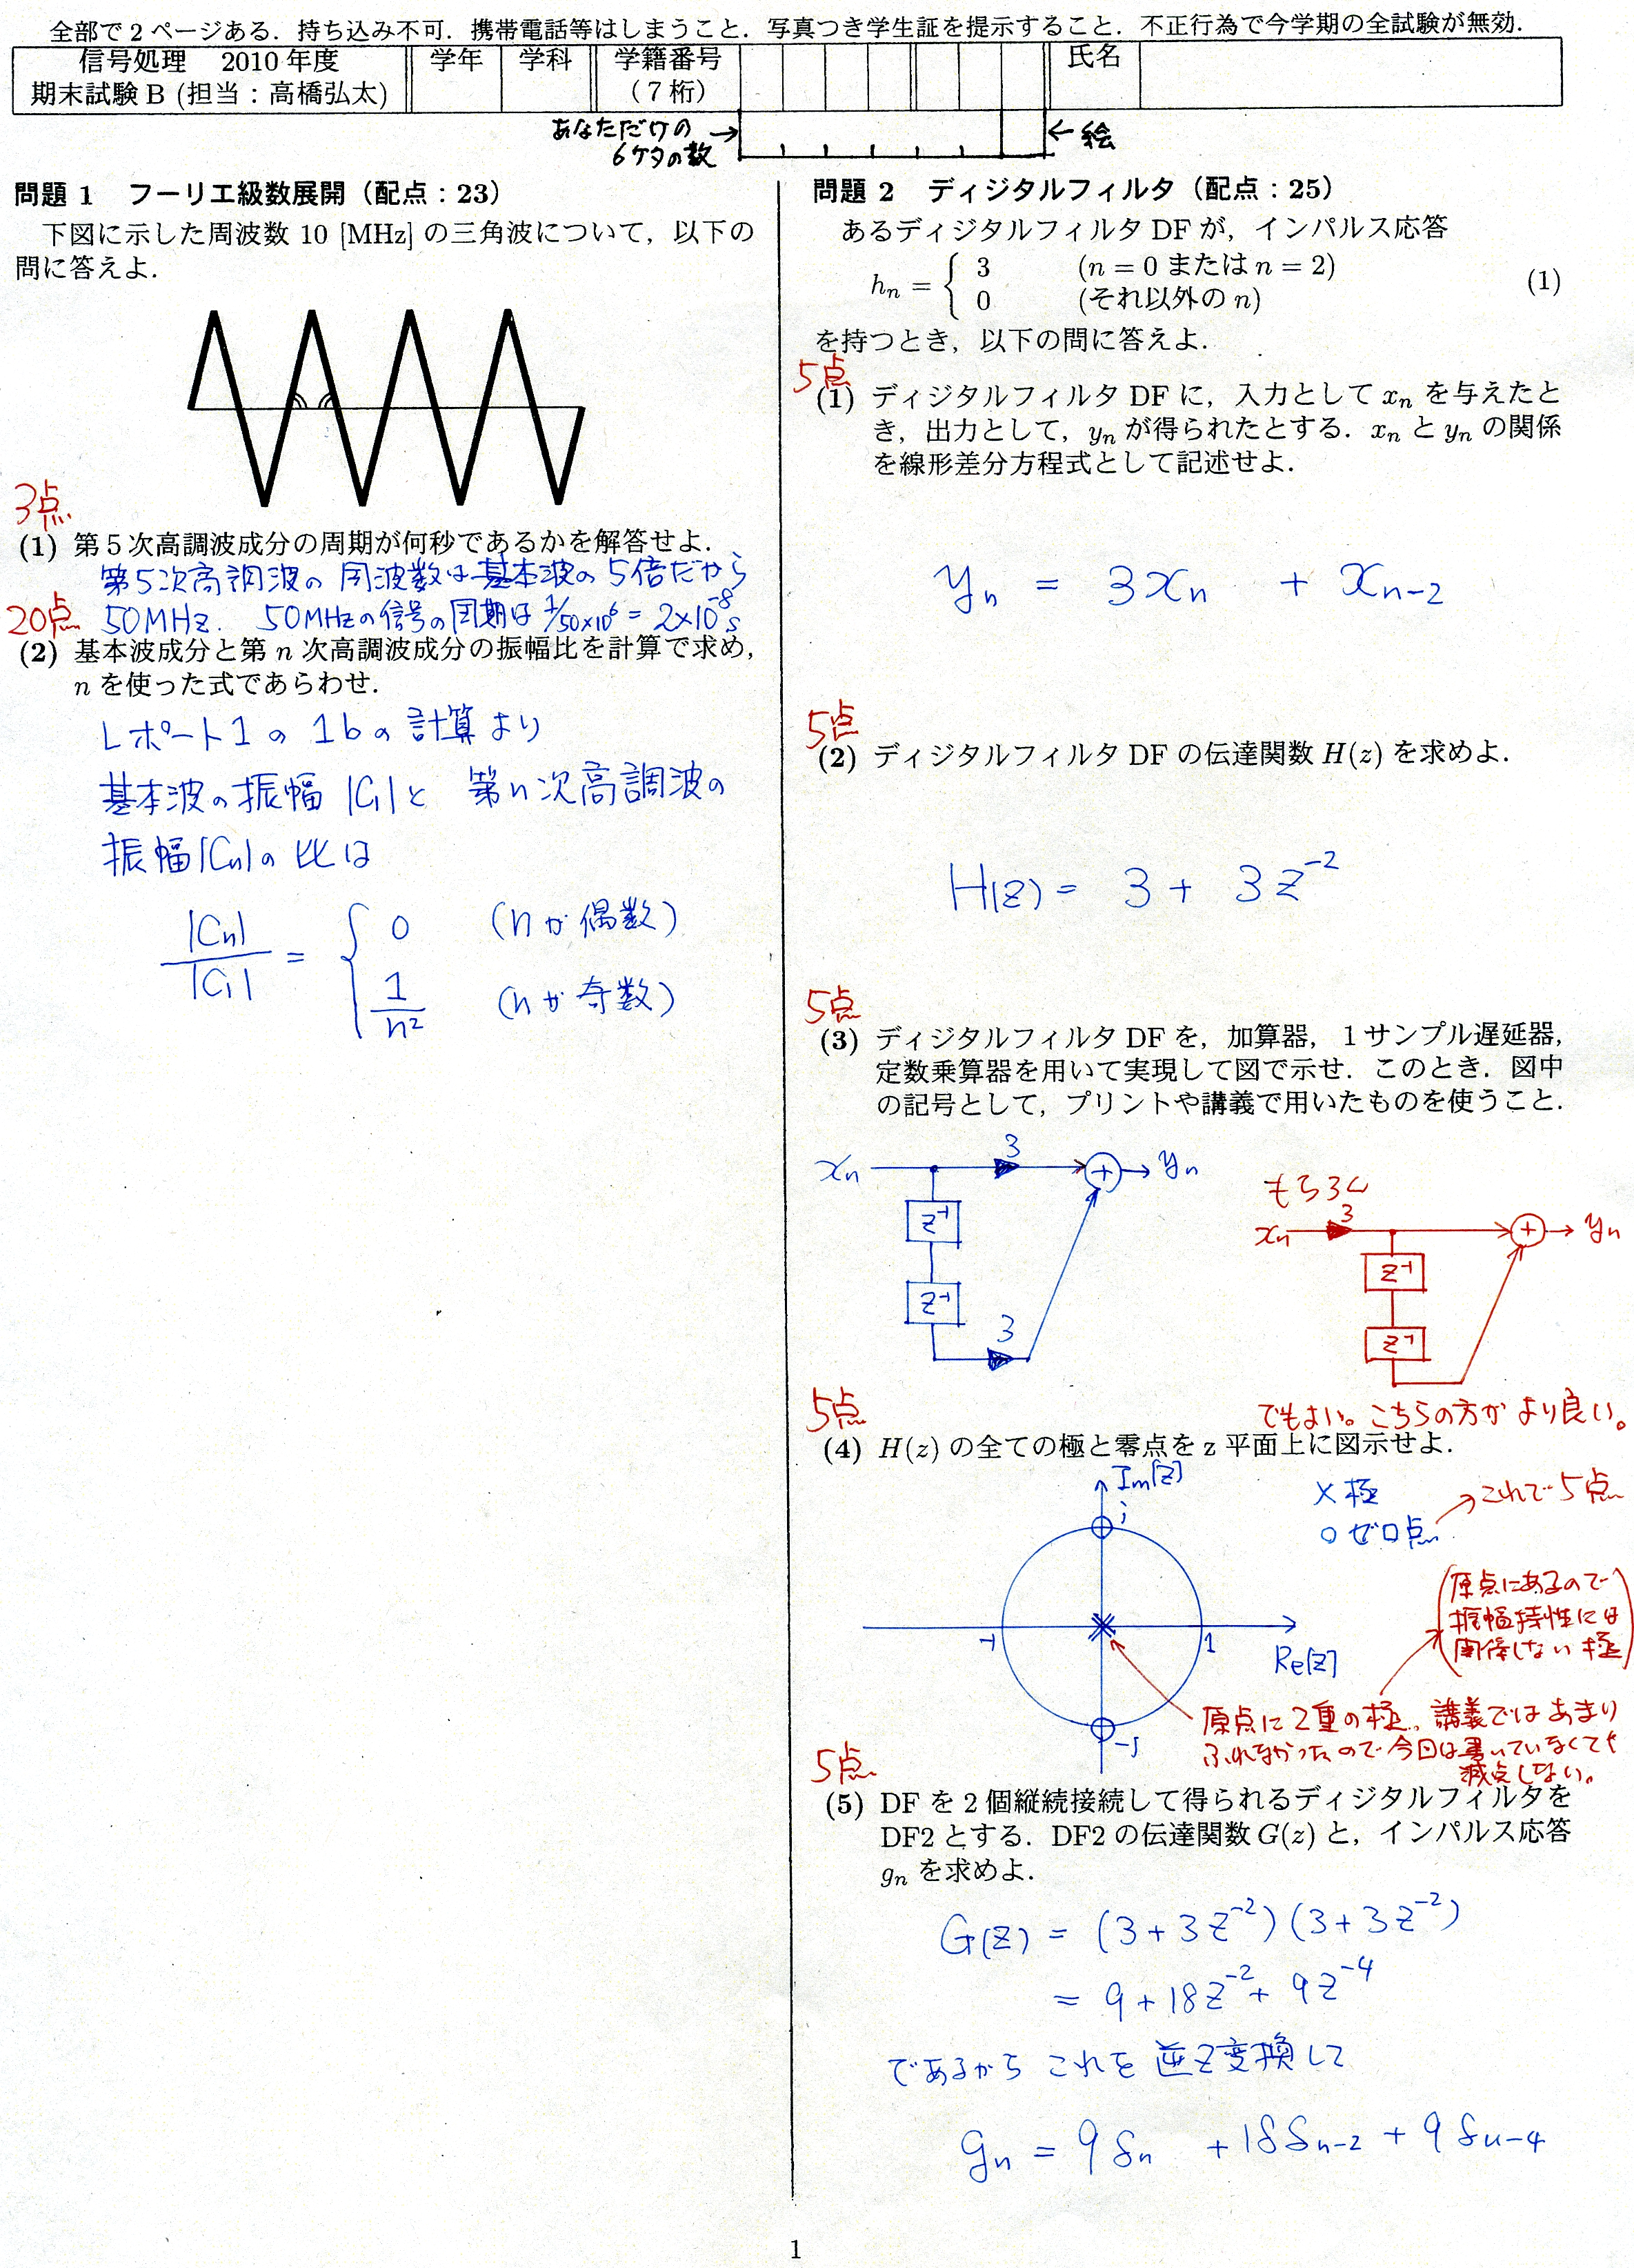 全部で2ページある．持ち込み不可．携帯電話等はしまうこと．写真つき学生証を提示すること．不正行為で今学期の全試験が無効．
信号処理　2010年度
期末試験B (担当：高橋弘太)
学年
学科
学籍番号
（7桁）
氏名
あなただけの→
6ケタの数
←絵
問題 1　フーリエ級数展開（配点：23）
下図に示した周波数 10 [MHz] の三角波について，以下の
問に答えよ．
3点
(1) 第5次高調波成分の周期が何秒であるかを解答せよ．
第5次高調波の周波数は基本波の5倍だから
50MHz. 50MHzの信号の周期は 1/50×10⁶ = 2×10⁻⁸s
20点
(2) 基本波成分と第 n 次高調波成分の振幅比を計算で求め，
n を使った式であらわせ．
レポート1の 1bの計算より
基本波の振幅 |C₁|と 第n次高調波の
振幅|Cn|の比は
|Cn|/|C₁| = { 0 (nが偶数)
1/n² (nが奇数)
問題 2　ディジタルフィルタ（配点：25）
あるディジタルフィルタ DF が，インパルス応答
hn = { 3 (n = 0 または n = 2)
0 (それ以外の n)
(1)
を持つとき，以下の問に答えよ．
5点
(1) ディジタルフィルタ DF に，入力として xn を与えたと
き，出力として，yn が得られたとする．xn と yn の関係
を線形差分方程式として記述せよ．
yn = 3xn + xn-2
5点
(2) ディジタルフィルタ DF の伝達関数 H(z) を求めよ．
H(z) = 3 + 3z⁻²
5点
(3) ディジタルフィルタ DF を，加算器，1サンプル遅延器，
定数乗算器を用いて実現して図で示せ．このとき．図中
の記号として，プリントや講義で用いたものを使うこと．
xn 3 + yn
z⁻¹
z⁻¹
3
もちろん
xn 3 + yn
z⁻¹
z⁻¹
でもよい。こちらの方がより良い。
5点
(4) H(z) の全ての極と零点を z 平面上に図示せよ．
Im[z]
j
× 極
○ ゼロ点
これで5点
-1
1
Re[z]
-j
(原点にあるので
振幅特性には
関係しない極)
原点に2重の極。講義ではあまり
ふれなかったので今回は書いていなくても
減点しない。
5点
(5) DF を 2 個縦続接続して得られるディジタルフィルタを
DF2 とする．DF2 の伝達関数 G(z) と，インパルス応答
gn を求めよ．
G(z) = (3+3z⁻²)(3+3z⁻²)
= 9+18z⁻²+9z⁻⁴
であるから これを 逆z変換して
gn = 9δn +18δn-2 + 9δn-4
1